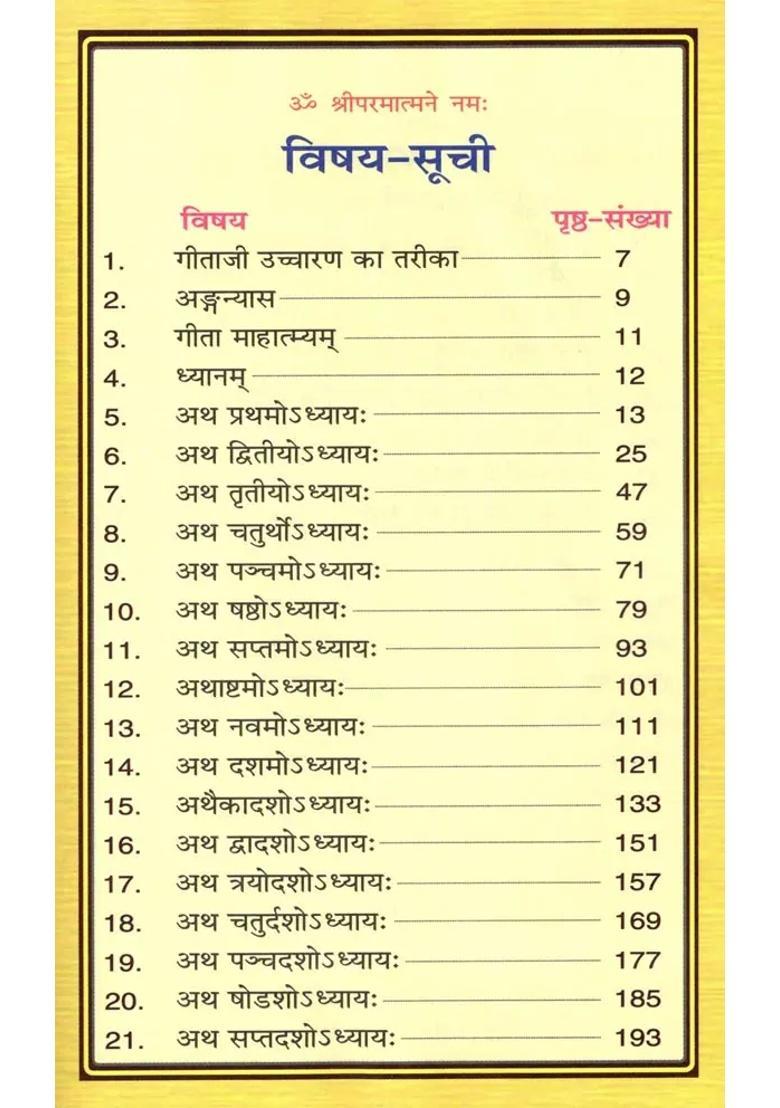 ॐ श्रीपरमात्मने नमः
विषय-सूची
विषय पृष्ठ-संख्या
1. गीताजी उच्चारण का तरीका 7
2. अङ्गन्यास 9
3. गीता माहात्म्यम् 11
4. ध्यानम् 12
5. अथ प्रथमोऽध्यायः 13
6. अथ द्वितीयोऽध्यायः 25
7. अथ तृतीयोऽध्यायः 47
8. अथ चतुर्थोऽध्यायः 59
9. अथ पञ्चमोऽध्यायः 71
10. अथ षष्ठोऽध्यायः 79
11. अथ सप्तमोऽध्यायः 93
12. अथाष्टमोऽध्यायः 101
13. अथ नवमोऽध्यायः 111
14. अथ दशमोऽध्यायः 121
15. अथैकादशोऽध्यायः 133
16. अथ द्वादशोऽध्यायः 151
17. अथ त्रयोदशोऽध्यायः 157
18. अथ चतुर्दशोऽध्यायः 169
19. अथ पञ्चदशोऽध्यायः 177
20. अथ षोडशोऽध्यायः 185
21. अथ सप्तदशोऽध्यायः 193